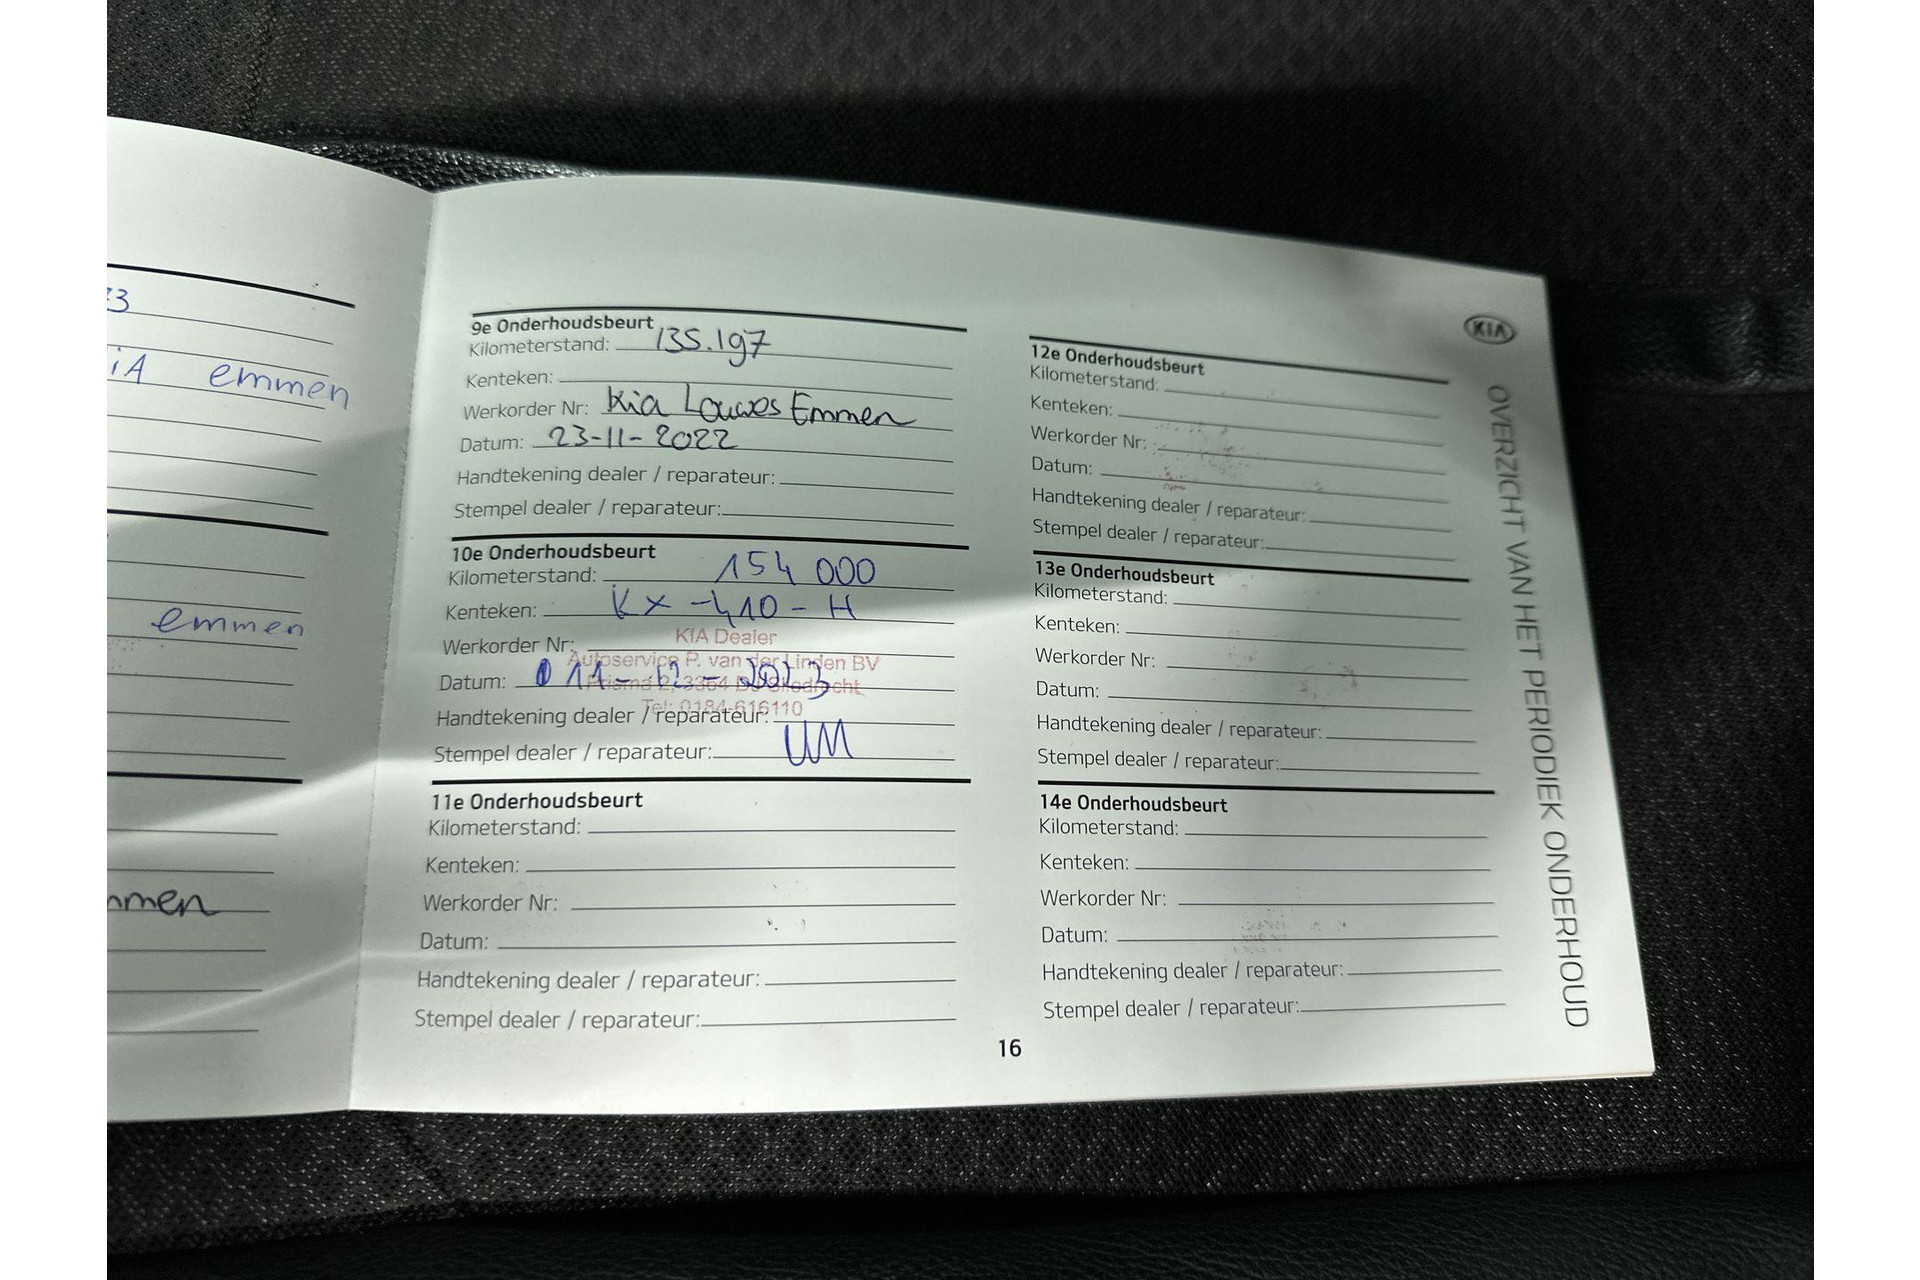 emmen
emmen
9e Onderhoudsbeurt
Kilometerstand: 135.197
Kenteken:
Werkorder Nr: Kia Louwes Emmen
Datum: 23-11-2022
Handtekening dealer / reparateur:
Stempel dealer / reparateur:
10e Onderhoudsbeurt
Kilometerstand: 154 000
Kenteken: KX-410-H
Werkorder Nr:
KIA Dealer
Autoservice P. van der Linden BV
Datum: 11-12-2023
Tel: 0184-616110
Handtekening dealer / reparateur:
Stempel dealer / reparateur:
11e Onderhoudsbeurt
Kilometerstand:
Kenteken:
Werkorder Nr:
Datum:
Handtekening dealer / reparateur:
Stempel dealer / reparateur:
12e Onderhoudsbeurt
Kilometerstand:
Kenteken:
Werkorder Nr:
Datum:
Handtekening dealer / reparateur:
Stempel dealer / reparateur:
13e Onderhoudsbeurt
Kilometerstand:
Kenteken:
Werkorder Nr:
Datum:
Handtekening dealer / reparateur:
Stempel dealer / reparateur:
14e Onderhoudsbeurt
Kilometerstand:
Kenteken:
Werkorder Nr:
Datum:
Handtekening dealer / reparateur:
Stempel dealer / reparateur:
KIA
OVERZICHT VAN HET PERIODIEK ONDERHOUD
16